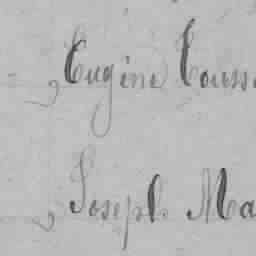 Eugène Touss
Joseph Ma